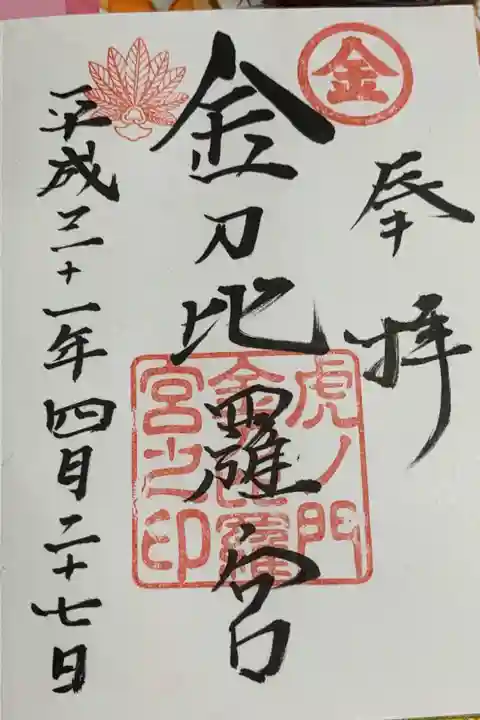 金
奉拝
金刀比羅宮
虎ノ門
金刀比羅
宮之印
平成三十一年四月二十七日